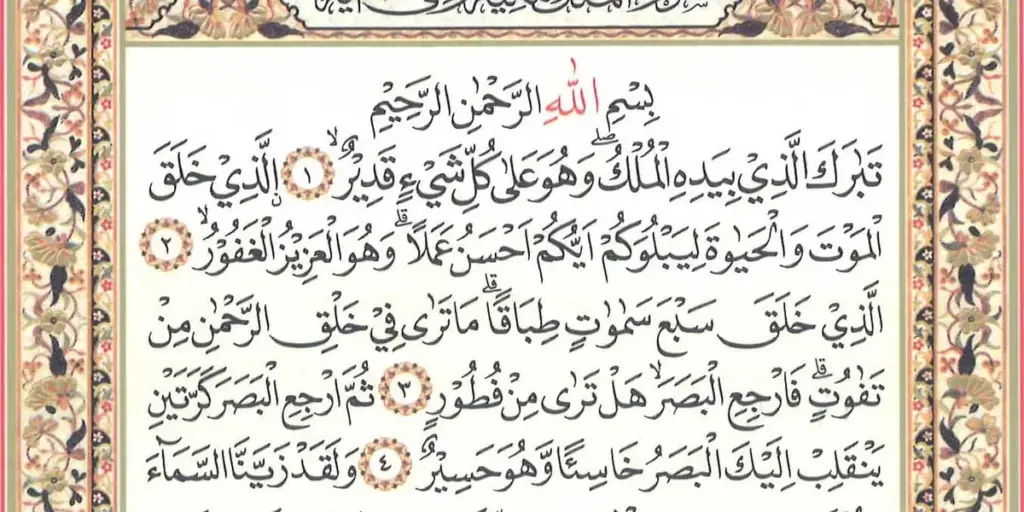 بِسْمِ اللّٰهِ الرَّحْمٰنِ الرَّحِيْمِ
تَبٰرَكَ الَّذِيْ بِيَدِهِ الْمُلْكُۖ وَهُوَ عَلٰى كُلِّ شَيْءٍ قَدِيْرٌۙ ١ ۨالَّذِيْ خَلَقَ
الْمَوْتَ وَالْحَيٰوةَ لِيَبْلُوَكُمْ اَيُّكُمْ اَحْسَنُ عَمَلًاۗ وَهُوَ الْعَزِيْزُ الْغَفُوْرُۙ ٢
الَّذِيْ خَلَقَ سَبْعَ سَمٰوٰتٍ طِبَاقًاۗ مَا تَرٰى فِيْ خَلْقِ الرَّحْمٰنِ مِنْ
تَفٰوُتٍۗ فَارْجِعِ الْبَصَرَۙ هَلْ تَرٰى مِنْ فُطُوْرٍ ٣ ثُمَّ ارْجِعِ الْبَصَرَ كَرَّتَيْنِ
يَنْقَلِبْ اِلَيْكَ الْبَصَرُ خَاسِئًا وَّهُوَ حَسِيْرٌ ٤ وَلَقَدْ زَيَّنَّا السَّمَاۤءَ